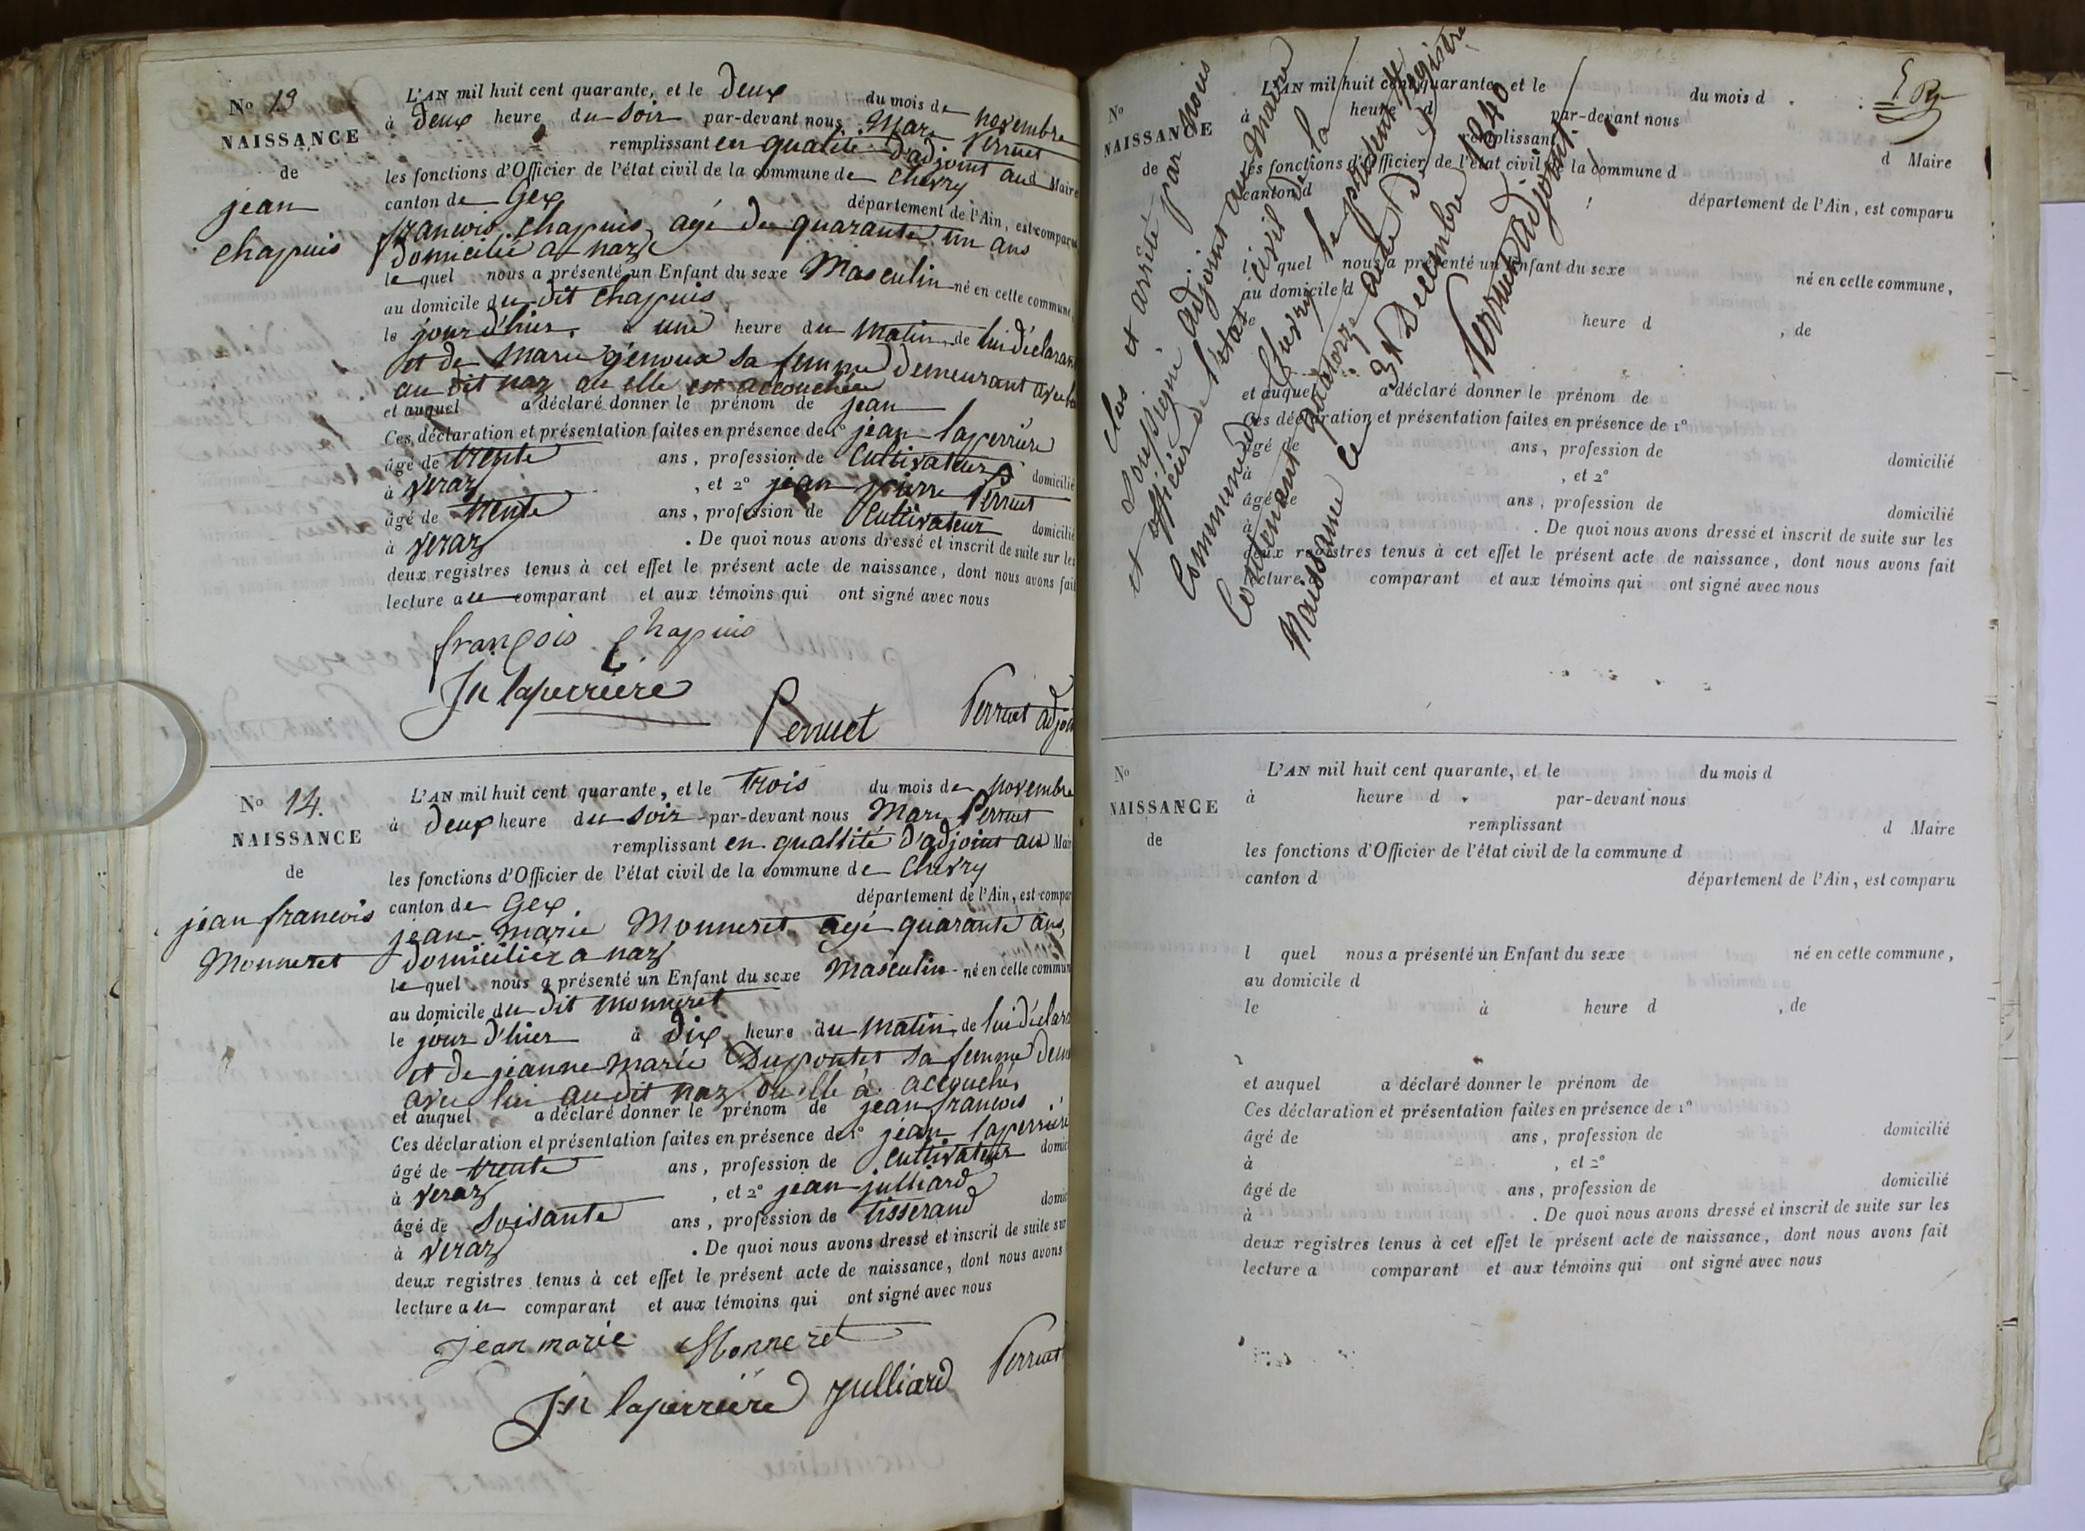 No 13
NAISSANCE
de
jean
chapuis
L'AN mil huit cent quarante, et le deux du mois de novembre
à deux heure du soir par-devant nous Marc Perruet
remplissant en qualité d'adjoint au d Maire
les fonctions d'Officier de l'état civil de la commune de Chevry
canton de Gex département de l'Ain, est comparu
francois chapuis agé de quarante un ans
domicilié a naz
le quel nous a présenté un Enfant du sexe Masculin né en cette commune,
au domicile du dit chapuis
le jour d'hier à une heure du matin de lui déclarant
et de Marie genoux sa femme demeurant avec lui
au dit naz ou elle est accouchée
et auquel a déclaré donner le prénom de jean
Ces déclaration et présentation faites en présence de 1º jean laperrière
âgé de trente ans, profession de Cultivateur domicilié
à veraz , et 2º jean pierre Perruet
âgé de trente ans, profession de Cultivateur domicilié
à veraz . De quoi nous avons dressé et inscrit de suite sur les
deux registres tenus à cet effet le présent acte de naissance, dont nous avons fait
lecture au comparant et aux témoins qui ont signé avec nous
françois Chapuis
Jn laperriere
Perruet Perruet adjoi
No 14.
NAISSANCE
de
jean francois
Monneret
L'AN mil huit cent quarante, et le trois du mois de novembre
à deux heure du soir par-devant nous Marc Perruet
remplissant en quallité d'adjoint au Mair
les fonctions d'Officier de l'état civil de la commune de Chevry
canton de Gex. département de l'Ain, est compar
jean-Marie Monneret agé quarante ans,
domiciliez a naz
le quel nous a présenté un Enfant du sexe Masculin né en celle commun
au domicile du dit monneret
le jour d'hier à dix heure du matin de lui déclara
et de jeanne marie Dupontet sa femme deme
avec lui au dit naz ou elle à accouché,
et auquel a déclaré donner le prénom de jean francois
Ces déclaration et présentation faites en présence de 1º jean laperrière
âgé de trente ans, profession de Cultivateur domic
à veraz , et 2º jean julliard
âgé de soisante ans, profession de tisserand domic
à veraz . De quoi nous avons dressé et inscrit de suite sur
deux registres tenus à cet effet le présent acte de naissance, dont nous avons
lecture au comparant et aux témoins qui ont signé avec nous
jean marie Monneret
Jn laperriere julliard Perruet
clos et arrêté par nous
soussigné adjoint au Maire
et officier de l'état civil de la
Commune de Chevry le présent registre
Contenant quatorze acte de
Naissance le 31 Decembre 1840
Perruet adjoint
No
NAISSANCE
de
L'AN mil huit cent quarante, et le du mois d
à heure d par-devant nous
remplissant
d Maire
les fonctions d'Officier de l'état civil de la commune d
canton d département de l'Ain, est comparu
l quel nous a présenté un Enfant du sexe né en cette commune,
au domicile d
le heure d , de
et auquel a déclaré donner le prénom de
Ces déclaration et présentation faites en présence de 1º
âgé de ans, profession de domicilié
à , et 2º
âgé de ans, profession de domicilié
à . De quoi nous avons dressé et inscrit de suite sur les
deux registres tenus à cet effet le présent acte de naissance, dont nous avons fait
lecture comparant et aux témoins qui ont signé avec nous
No
NAISSANCE
de
L'AN mil huit cent quarante, et le du mois d
à heure d par-devant nous
remplissant
d Maire
les fonctions d'Officier de l'état civil de la commune d
canton d département de l'Ain, est comparu
l quel nous a présenté un Enfant du sexe né en cette commune,
au domicile d
le à heure d , de
et auquel a déclaré donner le prénom de
Ces déclaration et présentation faites en présence de 1º
âgé de ans, profession de domicilié
à , et 2º
âgé de ans, profession de domicilié
à . De quoi nous avons dressé et inscrit de suite sur les
deux registres tenus à cet effet le présent acte de naissance, dont nous avons fait
lecture a comparant et aux témoins qui ont signé avec nous